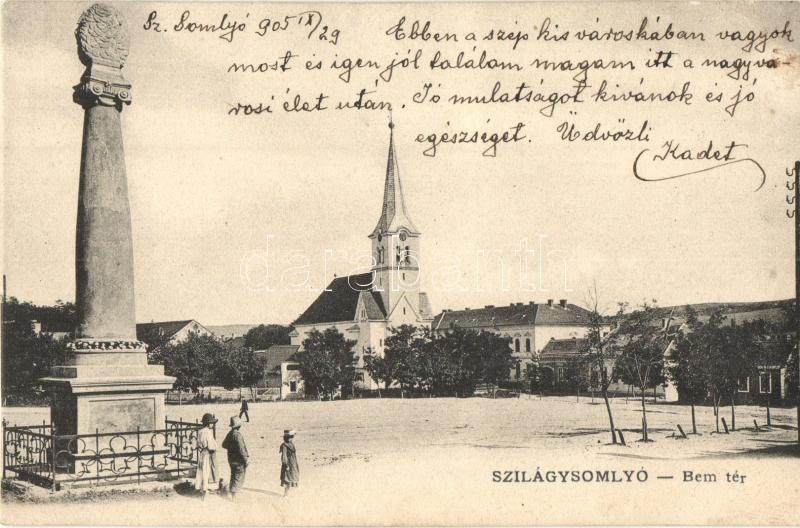 Sz. Somlyó 905 IX/29 Ebben a szép kis városkában vagyok
most és igen jól találom magam itt a nagyvá-
rosi élet után. Jó mulatságot kivánok és jó
egészséget. Üdvözli
Kadet
darabanth
SZILÁGYSOMLYÓ — Bem tér